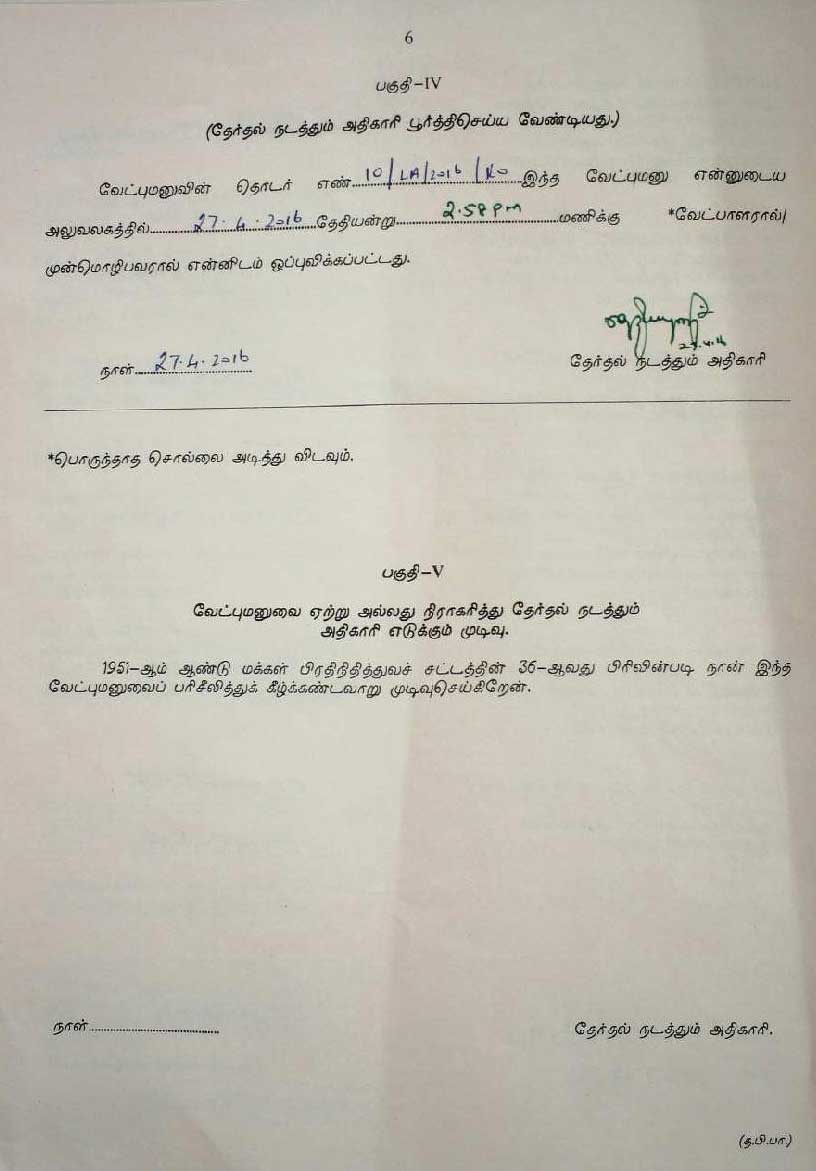 6
பகுதி-IV
(தேர்தல் நடத்தும் அதிகாரி பூர்த்திசெய்ய வேண்டியது.)
வேட்புமனுவின் தொடர் எண்.10/LA/2016/RO.இந்த வேட்புமனு என்னுடைய
அலுவலகத்தில்.27.4.2016.தேதியன்று.2.58 PM.மணிக்கு *வேட்பாளரால்/
முன்மொழிபவரால் என்னிடம் ஒப்புவிக்கப்பட்டது.
27.4.16
நாள்.27.4.2016 தேர்தல் நடத்தும் அதிகாரி
*பொருந்தாத சொல்லை அடித்து விடவும்.
பகுதி-V
வேட்புமனுவை ஏற்று அல்லது நிராகரித்து தேர்தல் நடத்தும்
அதிகாரி எடுக்கும் முடிவு.
1951-ஆம் ஆண்டு மக்கள் பிரதிநிதித்துவச் சட்டத்தின் 36-ஆவது பிரிவின்படி நான் இந்த
வேட்புமனுவைப் பரிசீலித்துக் கீழ்க்கண்டவாறு முடிவுசெய்கிறேன்.
நாள்.............................. தேர்தல் நடத்தும் அதிகாரி.
(த.பி.பா.)